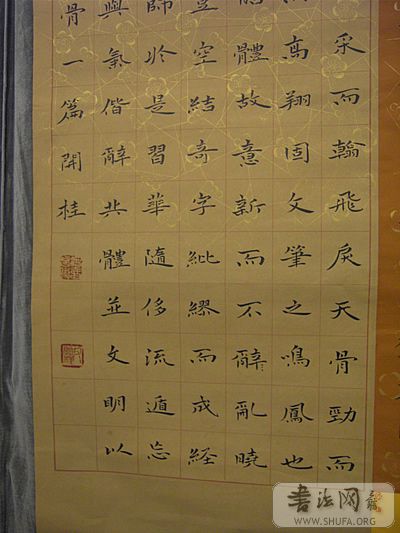 采而翰飛戾天骨勁而
高翔固文筆之鳴鳳也
體故意新而不辭亂曉
豈空結奇字紕繆而成経
師於是習華隨侈流遁忘
與氣偕辭共體並文明以
骨一篇開桂
書法网
WWW.SHUFA.ORG